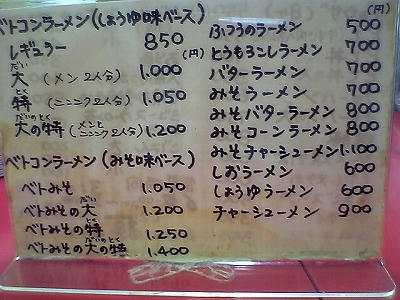 ベトコンラーメン(しょうゆ味ベース)
(円)
レギュラー 850
だい
大 (メン2人分) 1.000
とく
特 (ニンニク2人分) 1.050
だいのとく
大の特 (メンとニンニク2人分) 1.200
ベトコンラーメン(みそ味ベース)
ベトみそ 1.050
だい
ベトみその大 1.200
とく
ベトみその特 1.250
だいのとく
ベトみその大の特 1.400
(円)
ふつうのラーメン 500
とうもろこしラーメン 700
バターラーメン 700
みそラーメン 700
みそバターラーメン 800
みそコーンラーメン 800
みそチャーシューメン 1.100
しおラーメン 600
しょうゆラーメン 600
チャーシューメン 900